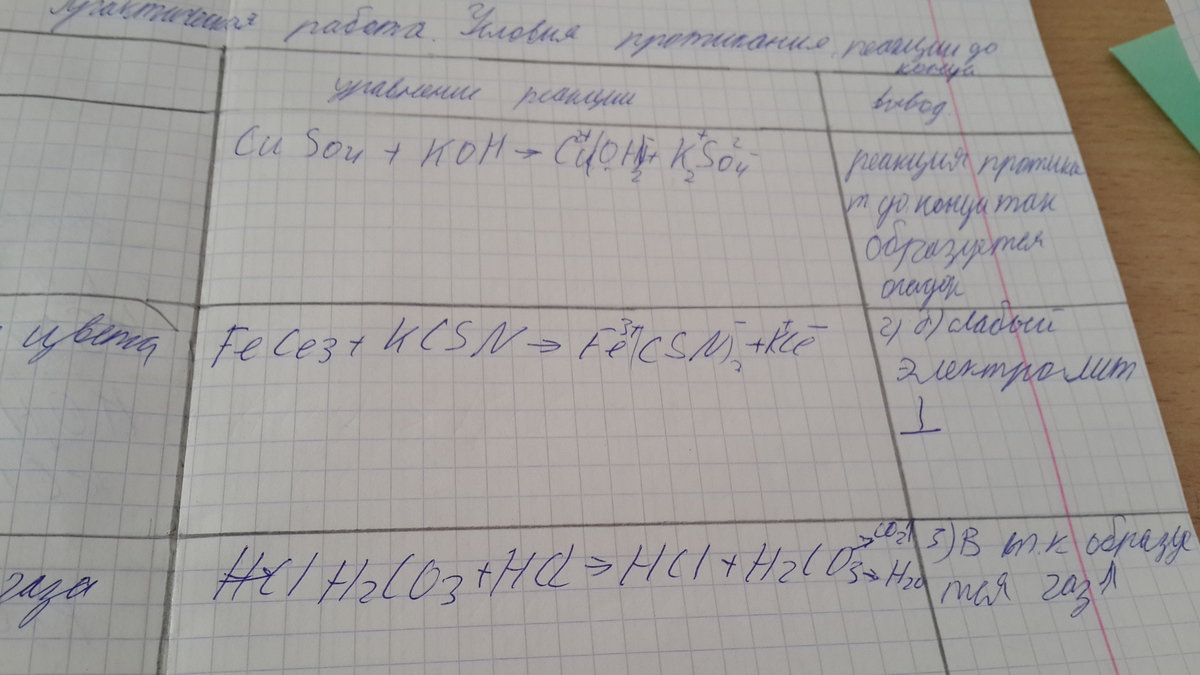 Практическая работа. Условия протикания реакции до конца
уравнение реакции
вывод
CuSO4 + KOH → Cu²⁺(OH)₂⁻ + K₂⁺SO4²⁻
реакция протика
т до конца так
образуется
осадок
цвета
FeCl3 + KCSN → Fe³⁺(CSN)₃⁻ + K⁺Cl⁻
2) б) слабый
электролит
1
газа
HCl H₂CO₃ + HCl → HCl + H₂CO₃ → CO₂↑ → H₂O
3) В т.к образуе
тся газ↑